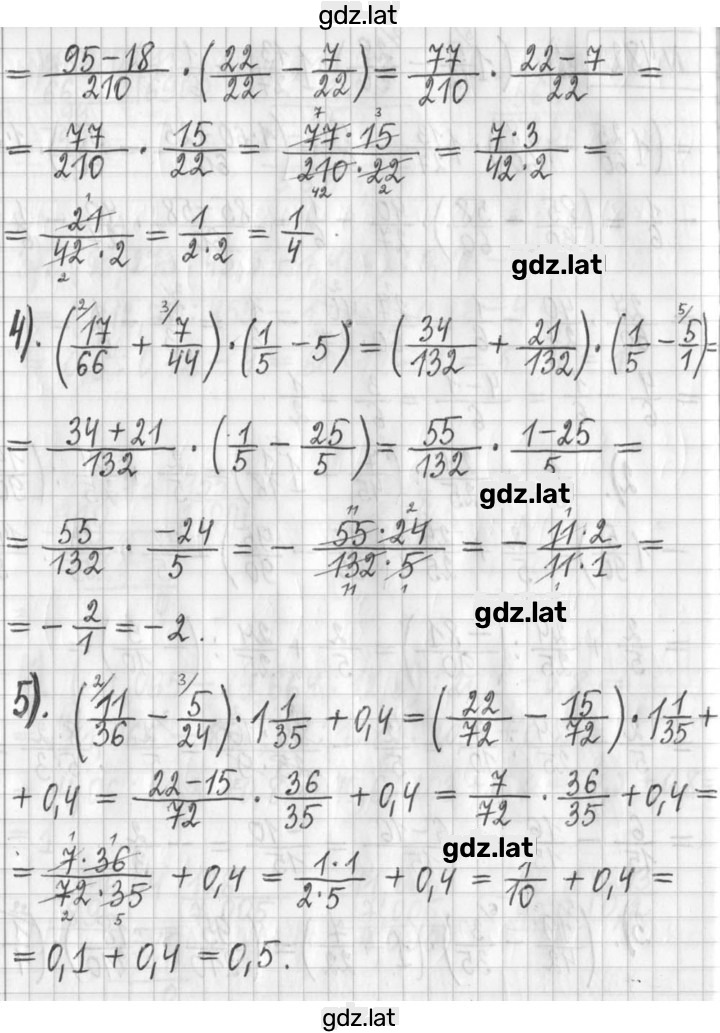 gdz.lat
= (95-18)/210 · (22/22 - 7/22) = 77/210 · (22-7)/22 =
= 77/210 · 15/22 = (77·15)/(210·22) = (7·3)/(42·2) =
= 21/(42·2) = 1/(2·2) = 1/4
gdz.lat
4). (17/66 + 7/44) · (1/5 - 5) = (34/132 + 21/132) · (1/5 - 5/1) =
= (34+21)/132 · (1/5 - 25/5) = 55/132 · (1-25)/5 =
gdz.lat
= 55/132 · (-24)/5 = - (55·24)/(132·5) = - (11·2)/(11·1) =
gdz.lat
= - 2/1 = -2.
5). (11/36 - 5/24) · 1 1/35 + 0,4 = (22/72 - 15/72) · 1 1/35 +
+ 0,4 = (22-15)/72 · 36/35 + 0,4 = 7/72 · 36/35 + 0,4 =
gdz.lat
= (7·36)/(72·35) + 0,4 = (1·1)/(2·5) + 0,4 = 1/10 + 0,4 =
= 0,1 + 0,4 = 0,5.
gdz.lat